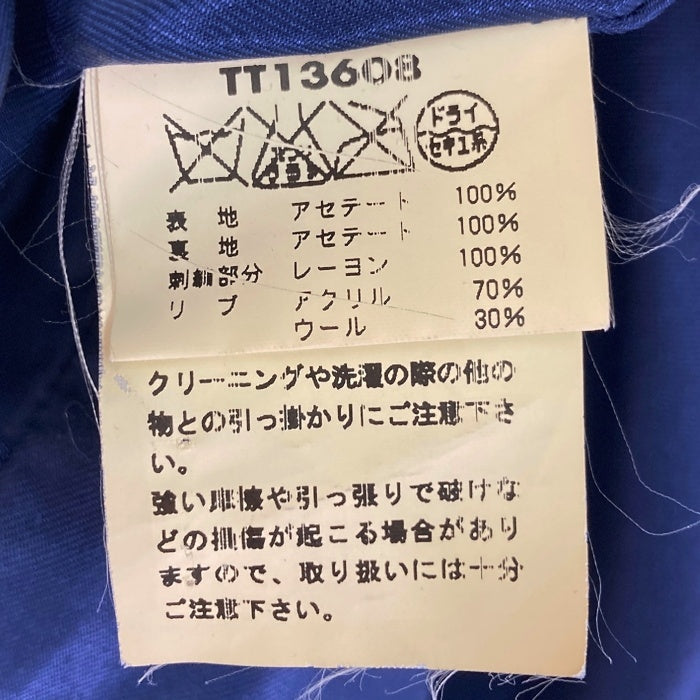 TT13608
ドライ
セキユ系
表地 アセテート 100%
裏地 アセテート 100%
刺繍部分 レーヨン 100%
リブ アクリル 70%
ウール 30%
クリーニングや洗濯の際の他の
物との引っ掛かりにご注意下さ
い。
強い摩擦や引っ張りで破けな
どの損傷が起こる場合があり
ますので、取り扱いには十分
ご注意下さい。